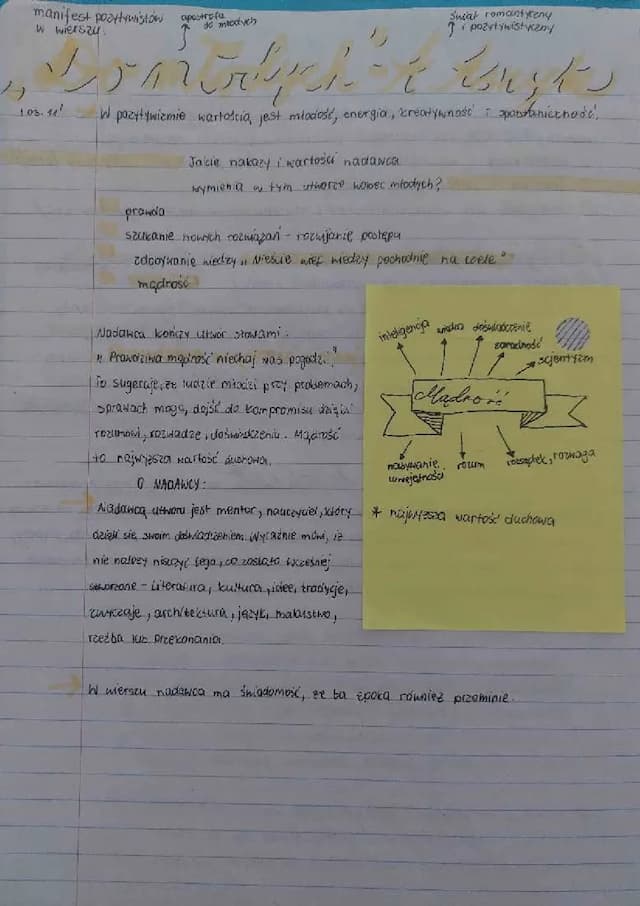 manifest pozytywistów
w wierszu.
apostrofa
do młodych
świat romantyczny
i pozytywistyczny
„Do młodych"
1.03. 11'
W pozytywizmie wartością jest młodość, energia, kreatywność i spontaniczność.
Jakie nakazy i wartości nadawca
wymienia w tym utworze wobec młodych?
prawda
szukanie nowych rozwiązań - rozwijanie postępu
zdobywanie wiedzy „Nieście więc wiedzy pochodnię na czele"
mądrość
Nadawca kończy utwór słowami:
„Prawdziwa mądrość niechaj was pogodzi."
To sugeruje, że ludzie młodzi przy problemach,
sprawach mogą dojść do kompromisu dzięki
rozumowi, rozwadze, doświadczeniu. Mądrość
to najwyższa wartość duchowa.
O NADAWCY:
Nadawcą utworu jest mentor, nauczyciel, który
dzieli się swoim doświadczeniem. Wyraźnie mówi, iż
nie należy niszczyć tego, co zostało wcześniej
stworzone - literatura, kultura, idee, tradycje,
zwyczaje, architektura, język, malarstwo,
rzeźba lub przekonania.
W wierszu nadawca ma świadomość, że ta epoka również przeminie.
inteligencja
wiedza
doświadczenie
zaradność
scjentyzm
Mądrość
nabywanie
umiejętności
rozum
rozsądek, rozwaga
* najwyższa wartość duchowa